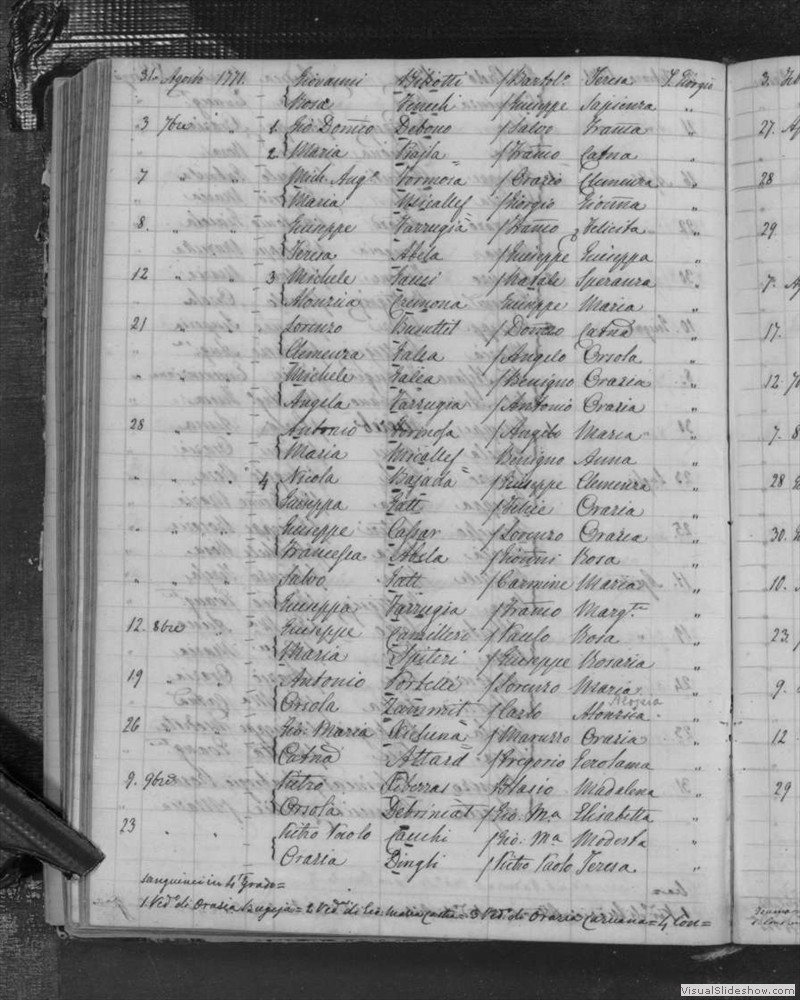 31 Agosto 1771. Giovanni /Bartol.o Teresa S. Giorgio
Rosa /Giuseppe Sapienza "
3 7bre " 1 Gio: Dom.co Debono /Salvo Fran.ca "
2 Maria Bajla /Fran.co Cat.na "
7 " " Mich: Ang.o Formosa /Orazio Clemenza "
Maria Micallef /Giorgio Gio:nna "
8. " " Giuseppe Farrugia /Fran.co Felicita "
Teresa Abela /Giuseppe Giuseppa "
12 " " 3 Michele /Natale Speranza "
Alonzia Cremona Giuseppe Maria "
21 " " Lorenzo Busuttil /Dom.co Cat.na "
Clemenza Falca /Angelo Orsola "
" " " Michele Falca /Benigno Orazia "
Angela Farrugia /Antonio Orazia "
28 " " Antonio Formosa /Angelo Maria "
Maria Micallef Benigno Anna "
" " " 4 Nicola Bajada /Giuseppe Clemenza "
Giuseppa Fatt /Felice Orazia "
" " " Giuseppe Cassar /Lorenzo Orazia "
Francesca Abela /Gio:nni Rosa "
" " " Salvo Fatt /Carmine Maria "
Giuseppa Farrugia /Fran.co Marg.ta "
12. 8bre " Giuseppe Camilleri /Paulo Rosa "
Maria Spiteri /Giuseppe Rosaria "
19 " " Antonio Portelli /Lorenzo Maria "
Aloysia
Orsola Zammit /Carlo Alonzia "
26 " " Gio: Maria Aciduna /Maruzzo Orazia "
Cat.na Attard /Grigorio Gerolama "
9. 9bre " Pietro Psberras Blasio Madalena "
Orsola Debrincat /Gio. M.a Elisabetta "
23 " " Pietro Paolo Cauchi /Gio. M.a Modesta "
Orazia Dingli /Pietro Paolo Teresa "
sanguinei in 4° Grado=
1 Ved.o di Orazia Bugeja= 2 Ved.a di Gio: Maria = 3 Ved.o di Orazia Caruana= 4 Con=
3. Feb
27. Ag
28
29.
7. Ag
17.
12. 7b
7. 8
28
30.
10.
23.
9.
12
29
VisualSlideshow.com